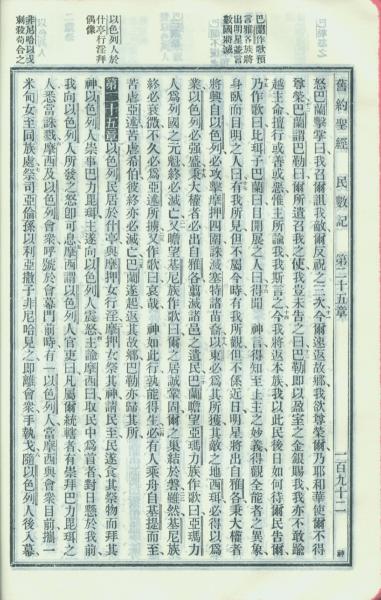 舊約聖經 民數記 第二十五章 一百九十二 神
巴蘭作歌預
言雅各族將
出明星並言
數國將滅
怒巴蘭擊掌曰我召爾詛我敵爾反祝之三次今爾速返故鄉我欲尊榮爾乃耶和華使爾不得
尊榮巴蘭謂巴勒曰爾所遣召我之使我豈未告之曰巴勒即以盈室之金銀賜我我亦不敢踰
越主命擅行或善或惡惟主所諭我我斯言之今我將返本族我以此民後日如何待爾民告爾
乃作歌曰比珥子巴蘭曰目開展之人曰得聞 神言得知至上主之妙義得觀全能者之異象
身臥而目明之人曰有我所見但不屬今時有我所觀但不係近日明星將出自雅各秉大權者
將興自以色列必攻擊摩押四圍誅滅塞特諸苗裔以東必爲其所獲其敵之地西珥必得以爲
業以色列必強盛秉大權者必出自雅各翦滅諸邑之遺民巴蘭瞻望亞瑪力族作歌曰亞瑪力
人爲列國之元魁終必滅亡又瞻望基尼族作歌曰爾之居誠鞏固爾之巢結於磐雖然基尼族
終必衰微不久必爲亞述所擄又作歌曰哀哉 神如此行孰能得生必有人乘舟自基提而至
苦虐亞述苦虐希伯彼終亦必滅亡巴蘭遂起返其故鄉巴勒亦歸其所
以色列人於
什亭行淫拜
偶像
第二十五章 以色列民居於什亭與摩押女行淫摩押女祭其神請民至民遂食其祭物而拜其
神以色列人崇事巴力毘珥主遂向以色列人震怒主諭摩西曰取民中爲首者對日懸於我前
我向以色列人所發之怒卽可息摩西謂以色列人官吏曰凡屬爾統轄者有崇拜巴力毘珥之
人悉當誅戮摩西及以色列會衆呼號於會幕門前時有一以色列人當摩西與會衆目前攜一
非尼哈以戈
刺殺苟合之
米甸女至同族處祭司亞倫孫以利亞撒子非尼哈見之卽離會衆手執戈隨以色列人後入幕